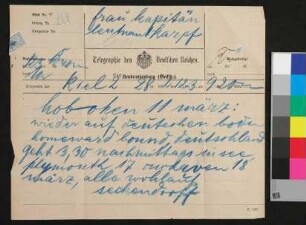 frau kapitän
leutnant karpf
Telegraphie des Deutschen Reiches.
Kiel 2 28 12/3 9 20
hoboken 11 märz:
wieder auf deutschen boden
homeward bound, deutschland
geht 3,30 nachmittags in see,
plymouth 17 cuxhaven 18
märz, alle wohlauf
seckendorff